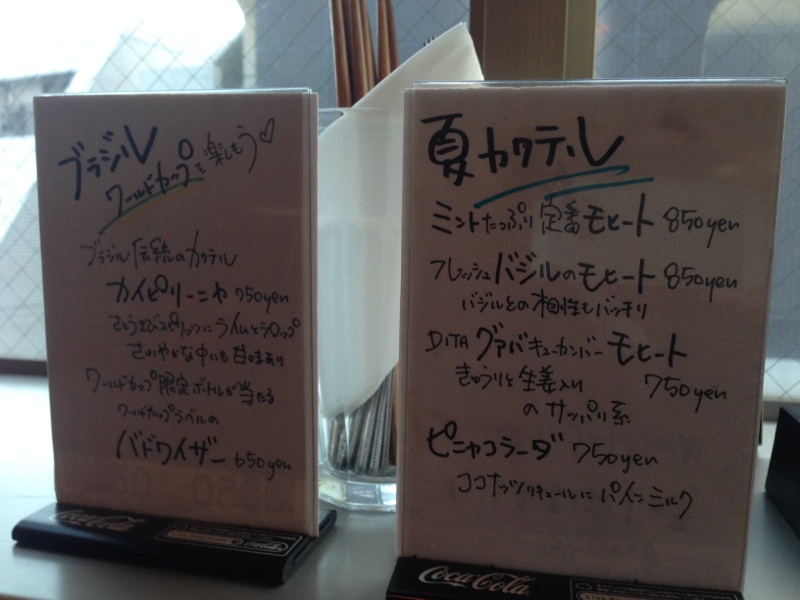 ブラジル
ワールドカップを楽しもう♡
ブラジル伝統のカクテル
カイピリーニャ 750yen
さとうきびスピリッツにライムとシロップ
さわやかな中にも甘味あり
ワールドカップ限定ボトルが当たる
ワールドカップラベルの
バドワイザー 650yen
Coca-Cola
夏カクテル
ミントたっぷり定番モヒート 850yen
フレッシュバジルのモヒート 850yen
バジルとの相性もバッチリ
DITA グァバキューカンバーモヒート
きゅうりと生姜入り 750yen
のサッパリ系
ピニャコラーダ 750yen
ココナッツリキュールにパインミルク
Coca-Cola